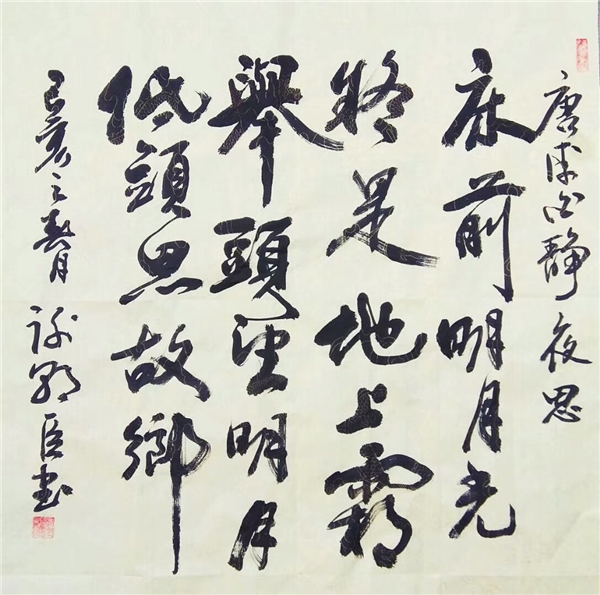 唐李白靜夜思
床前明月光
疑是地上霜
舉頭望明月
低頭思故鄉
己亥之月臣書